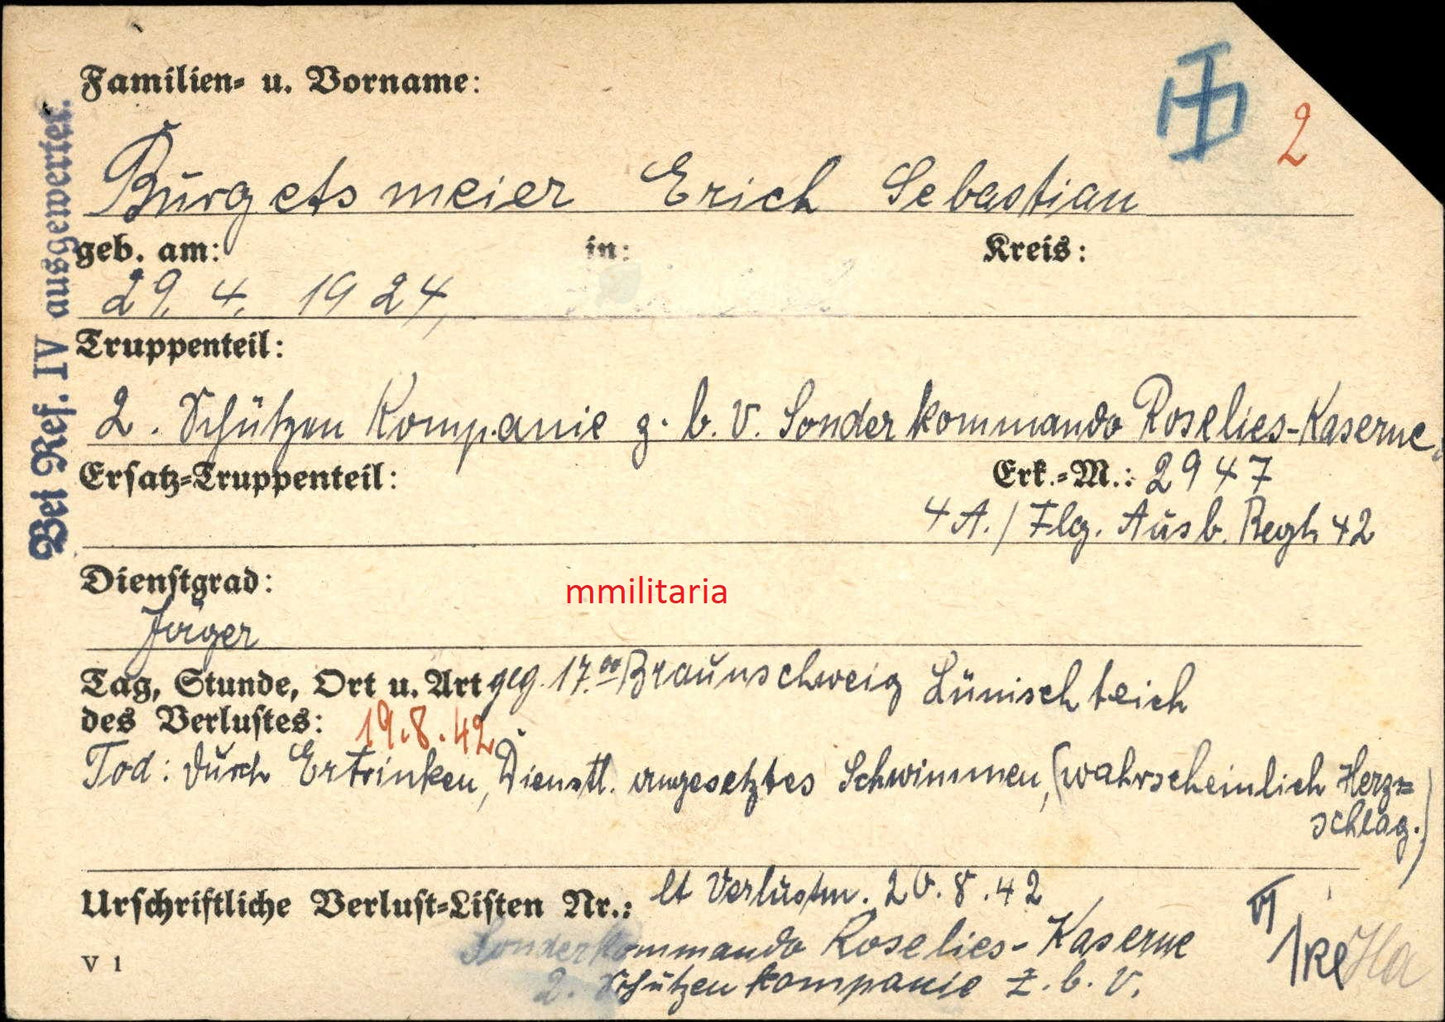 Familien- u. Vorname:
2
Burgetsmeier Erich Sebastian
geb. am: in: Kreis:
29. 4. 1924,
Truppenteil:
2. Schützen Kompanie z. b. V. Sonderkommando Roselies-Kaserne.
Ersatz-Truppenteil: Erk.-M.: 2947
4 A. / Flg. Ausb. Regt. 42
Dienstgrad:
mmilitaria
Jäger
Tag, Stunde, Ort u. Art geg. 17.00 Braunschweig Lünischteich
des Verlustes: 19.8.42
Tod: durch Ertrinken, Dienstl. angesetztes Schwimmen, (wahrscheinlich Herz=
schlag.)
Urschriftliche Verlust-Listen Nr.: lt Verlustm. 20.8.42
Sonderkommando Roselies-Kaserne
V 1
2. Schützenkompanie z. b. V.
Bei Ref. IV ausgewertet.